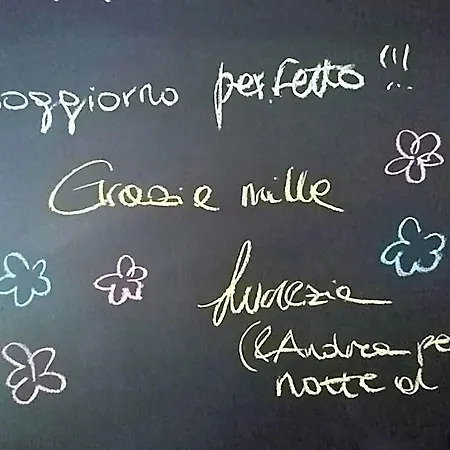 soggiorno perfetto!!!
Grazie mille
(& Andrea pe
notte d